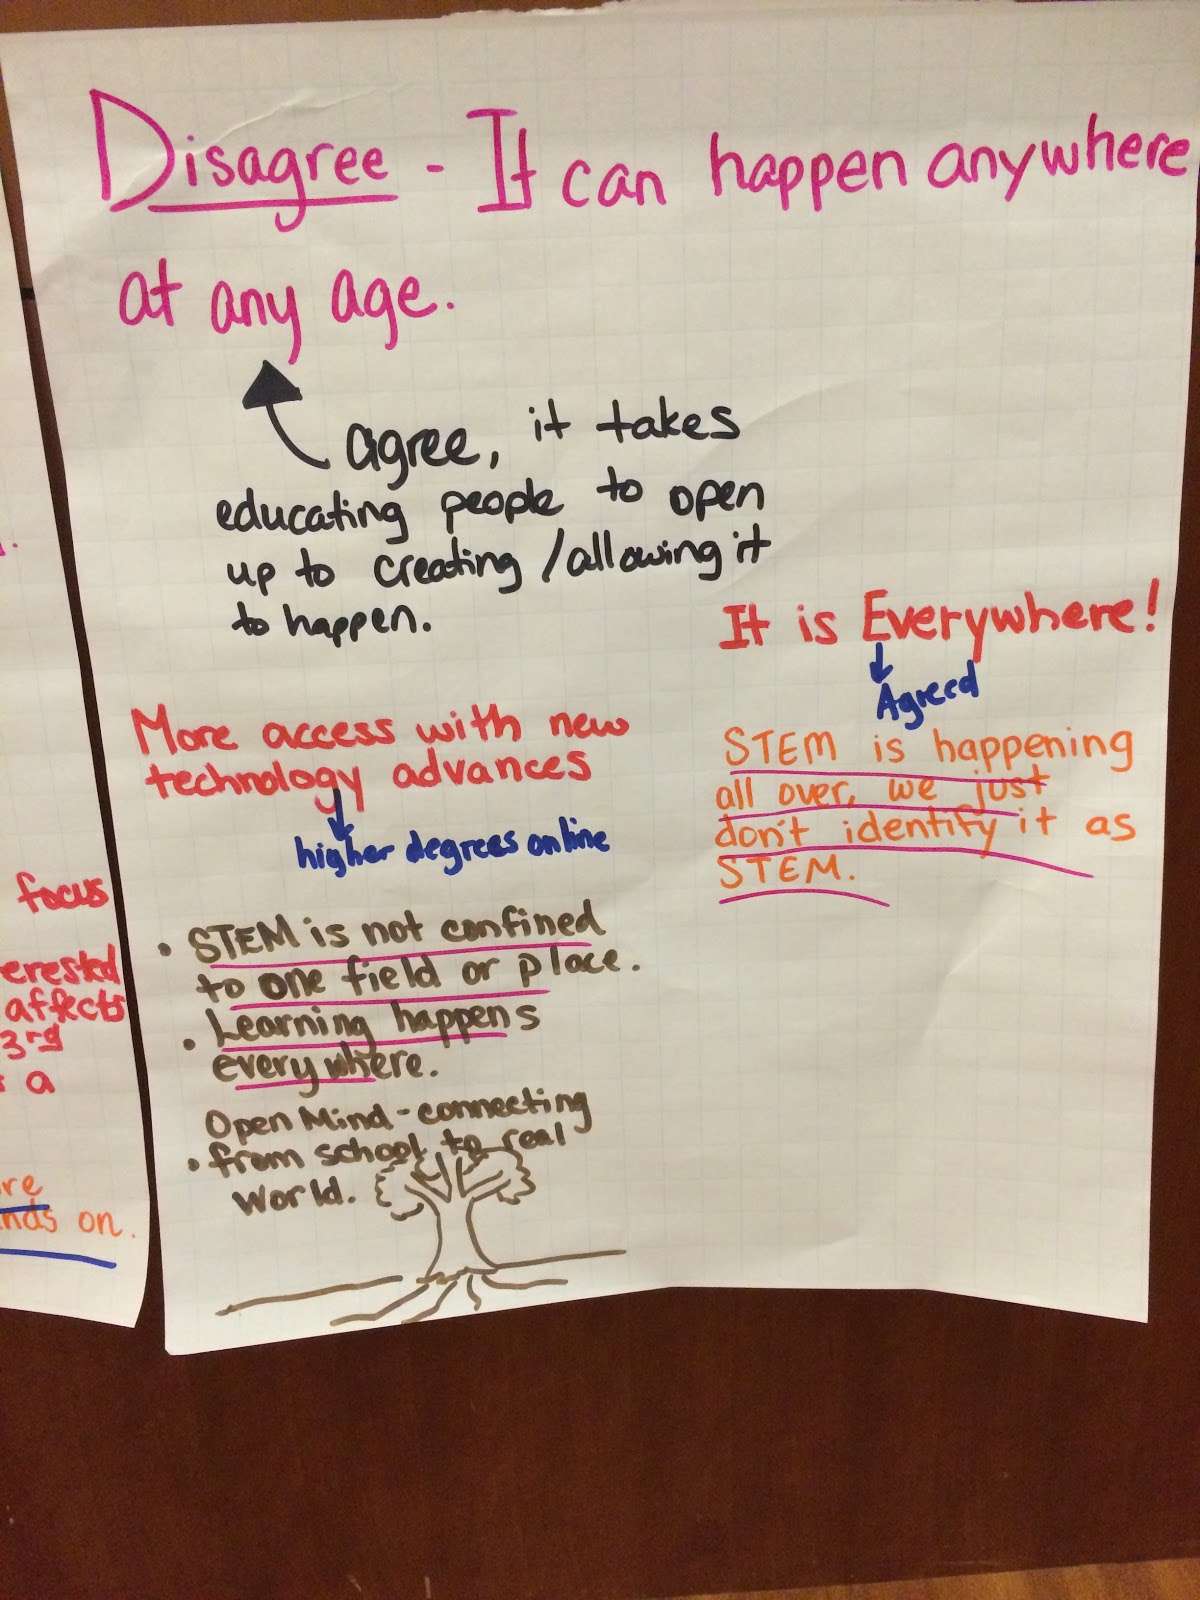 Disagree - It can happen anywhere
at any age.
agree, it takes
educating people to open
up to creating/allowing it
to happen.
It is Everywhere!
Agreed
STEM is happening
all over, we just
don't identify it as
STEM.
More access with new
technology advances
higher degrees online
• STEM is not confined
to one field or place.
• Learning happens
everywhere.
Open Mind - connecting
• from school to real
world.
focus
erested
affects
3rd
a
re
nds on.